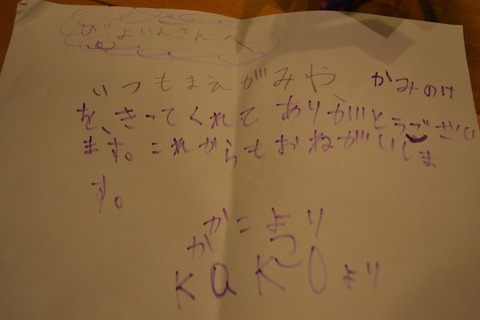 びよいんさんへ
いつもまえがみや かみのけ
を、きってくれて ありがとうござい
ます。これからもおねがいしま
す。
かこより
かこ
KaKOより